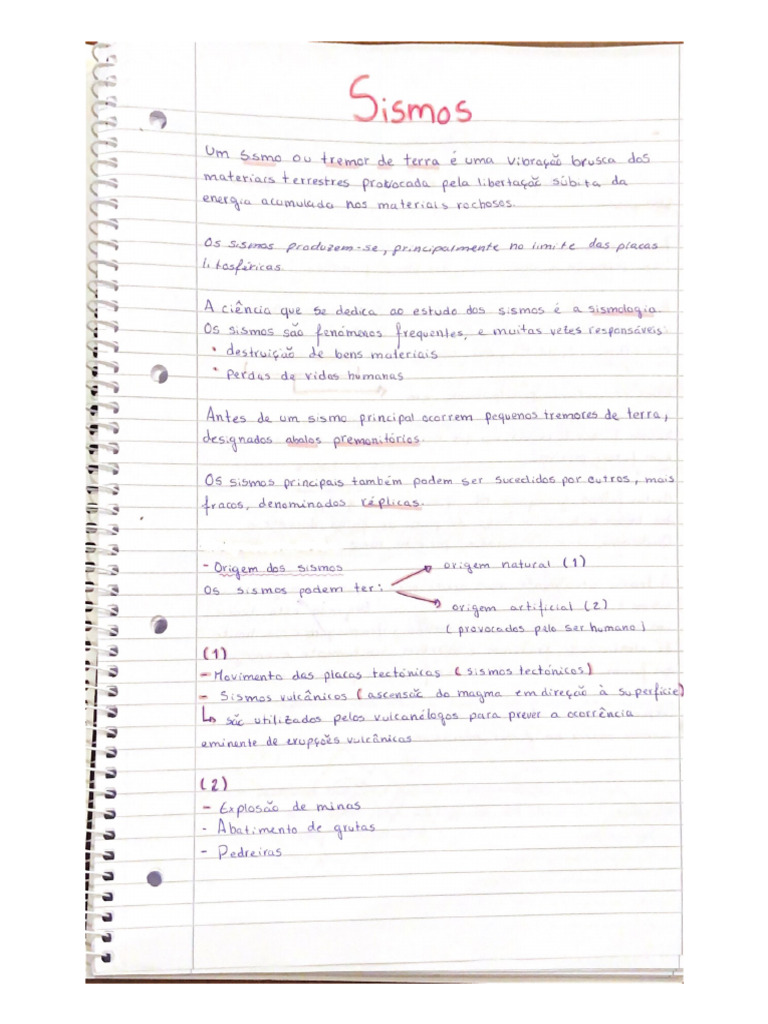 Sismos
Um sismo ou tremor de terra é uma vibração brusca dos
materiais terrestres provocada pela libertação súbita da
energia acumulada nos materiais rochosos.
Os sismos produzem-se, principalmente no limite das placas
litosféricas.
A ciência que se dedica ao estudo dos sismos é a sismologia.
Os sismos são fenómenos frequentes, e muitas vezes responsáveis:
• destruição de bens materiais
• perdas de vidas humanas
Antes de um sismo principal ocorrem pequenos tremores de terra,
designados abalos premonitórios.
Os sismos principais também podem ser sucedidos por outros, mais
fracos, denominados réplicas.
- Origem dos sismos
origem natural (1)
Os sismos podem ter:
origem artificial (2)
(provocados pelo ser humano)
(1)
- Movimento das placas tectónicas (sismos tectónicos)
- Sismos vulcânicos (ascensão do magma em direção à superfície)
↳ são utilizados pelos vulcanólogos para prever a ocorrência
eminente de erupções vulcânicas
(2)
- Explosão de minas
- Abatimento de grutas
- Pedreiras